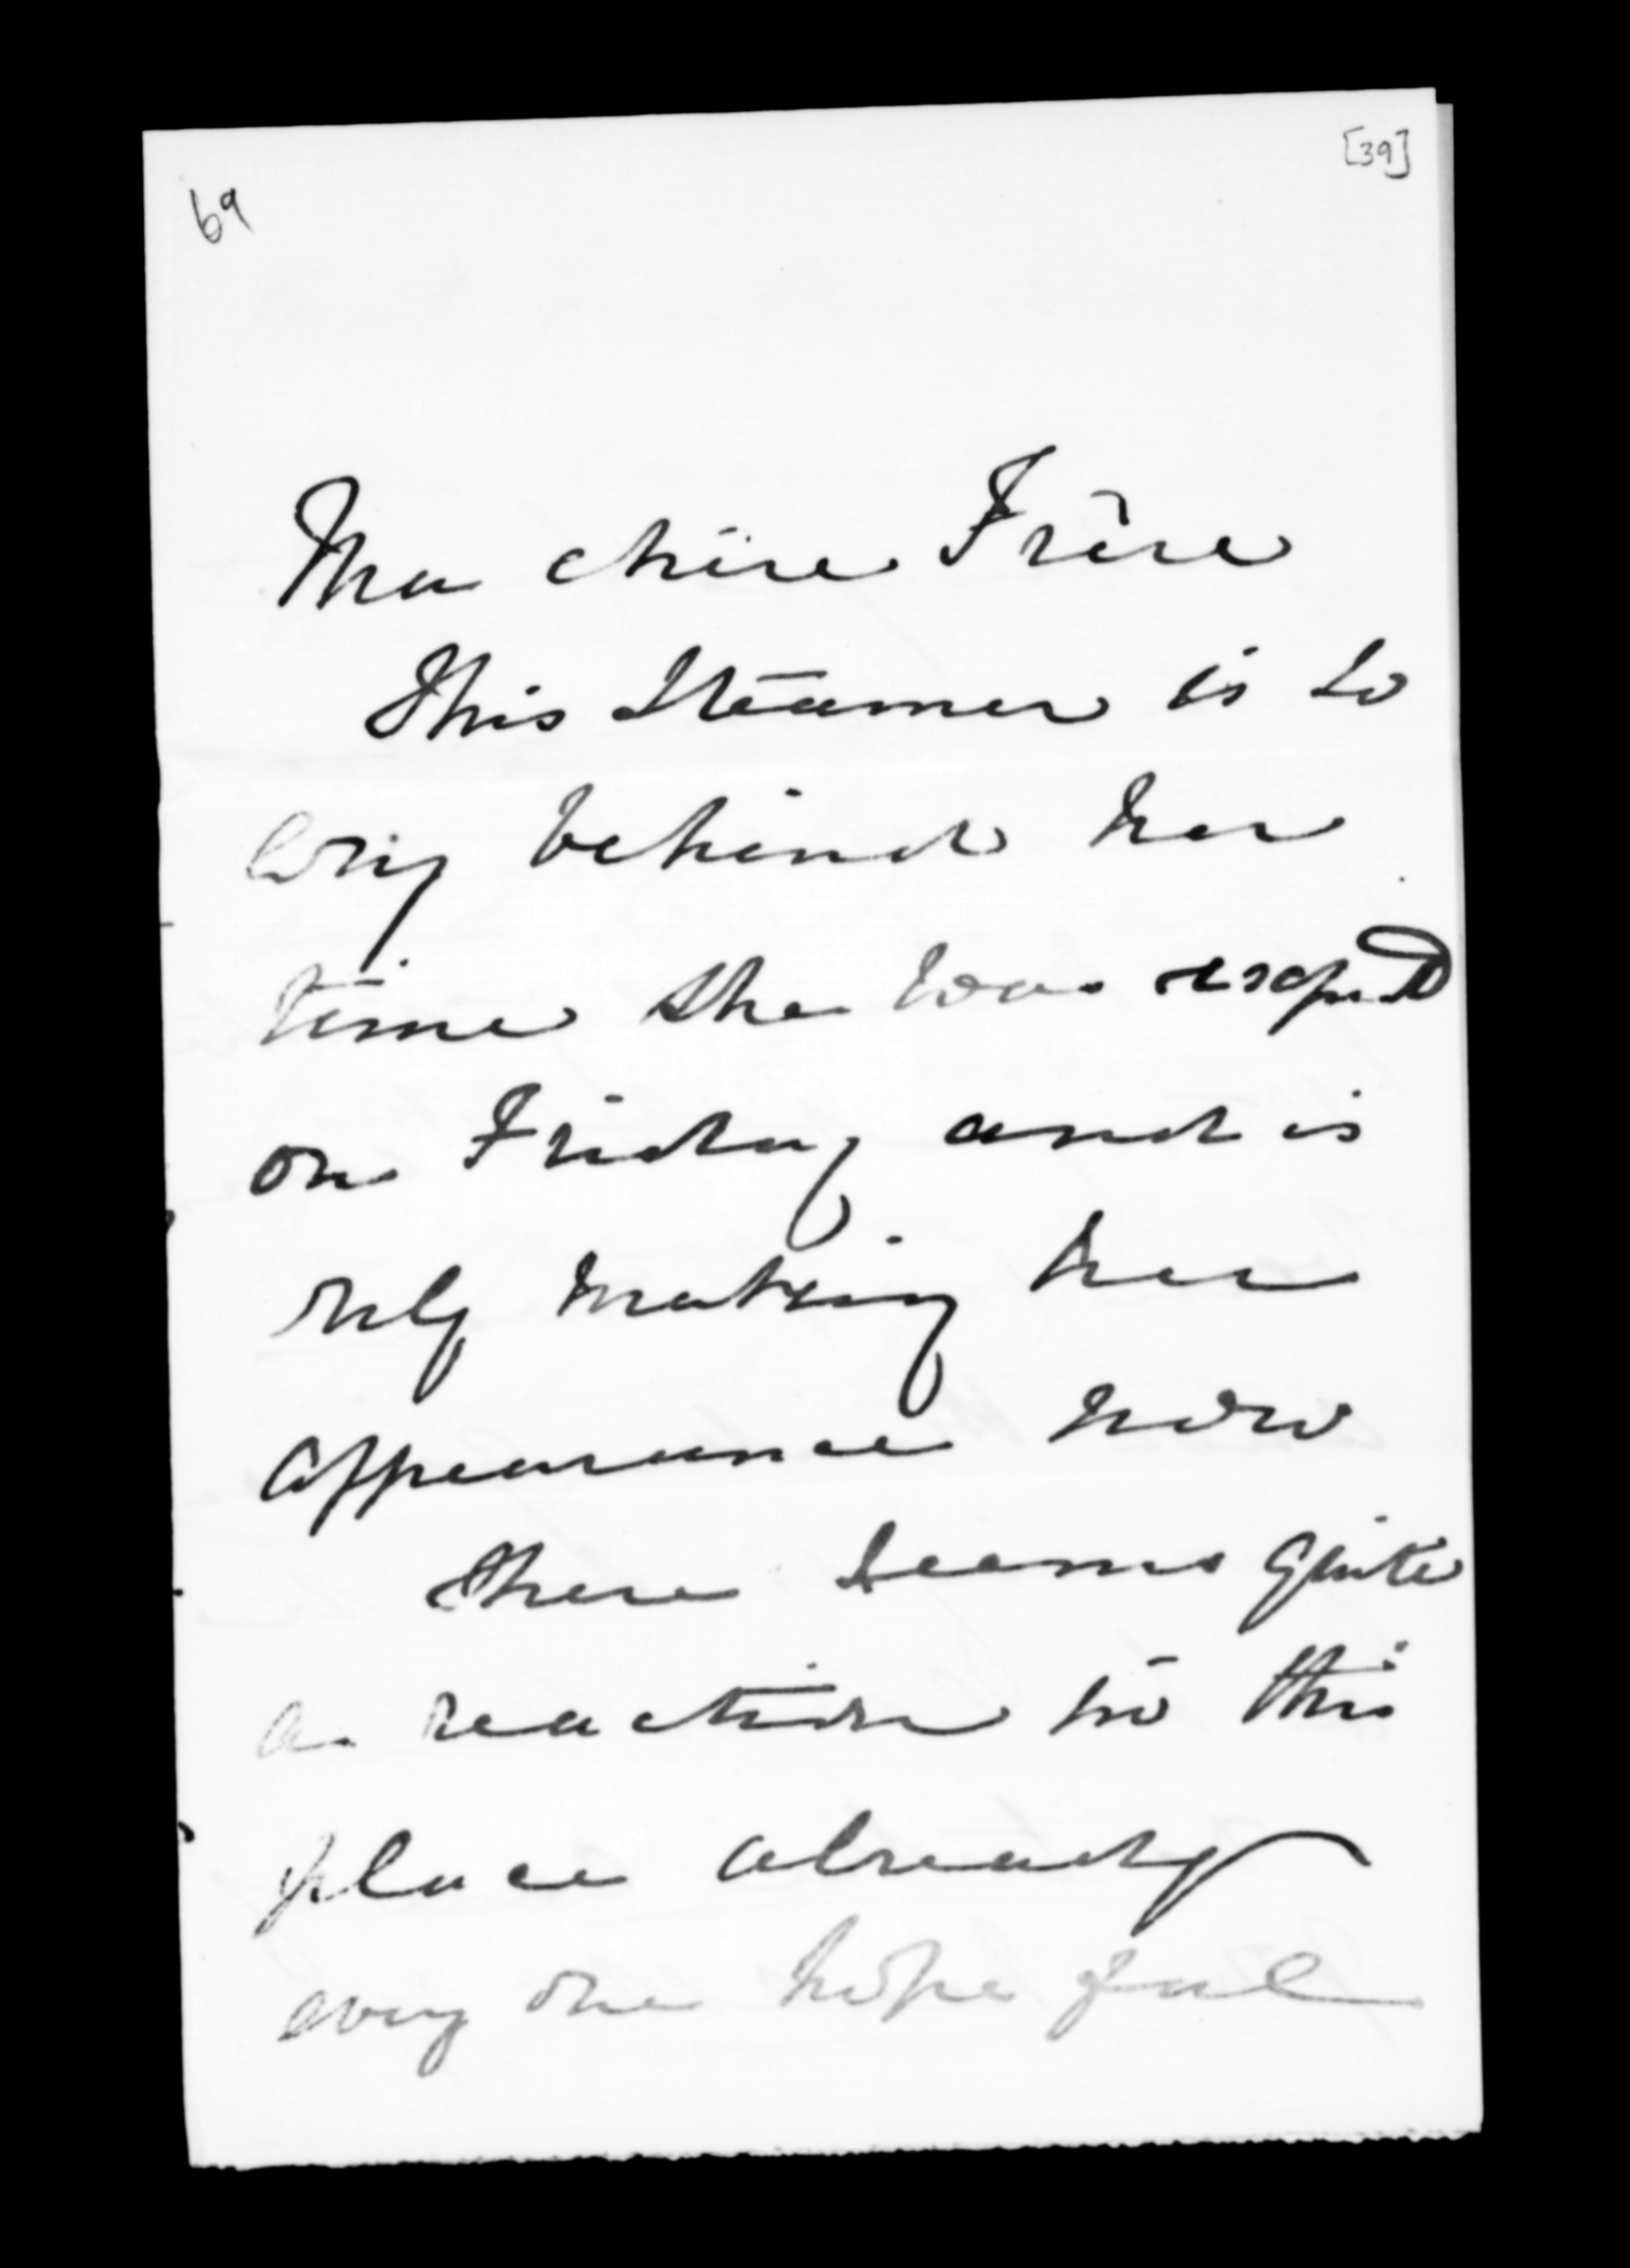 [39]
69
Ma chère Frère
This Steamer is so
long behind her
time she was expectd
on Friday and is
only making her
appearance now
There seems quite
a reaction in this
place already
every one hopeful